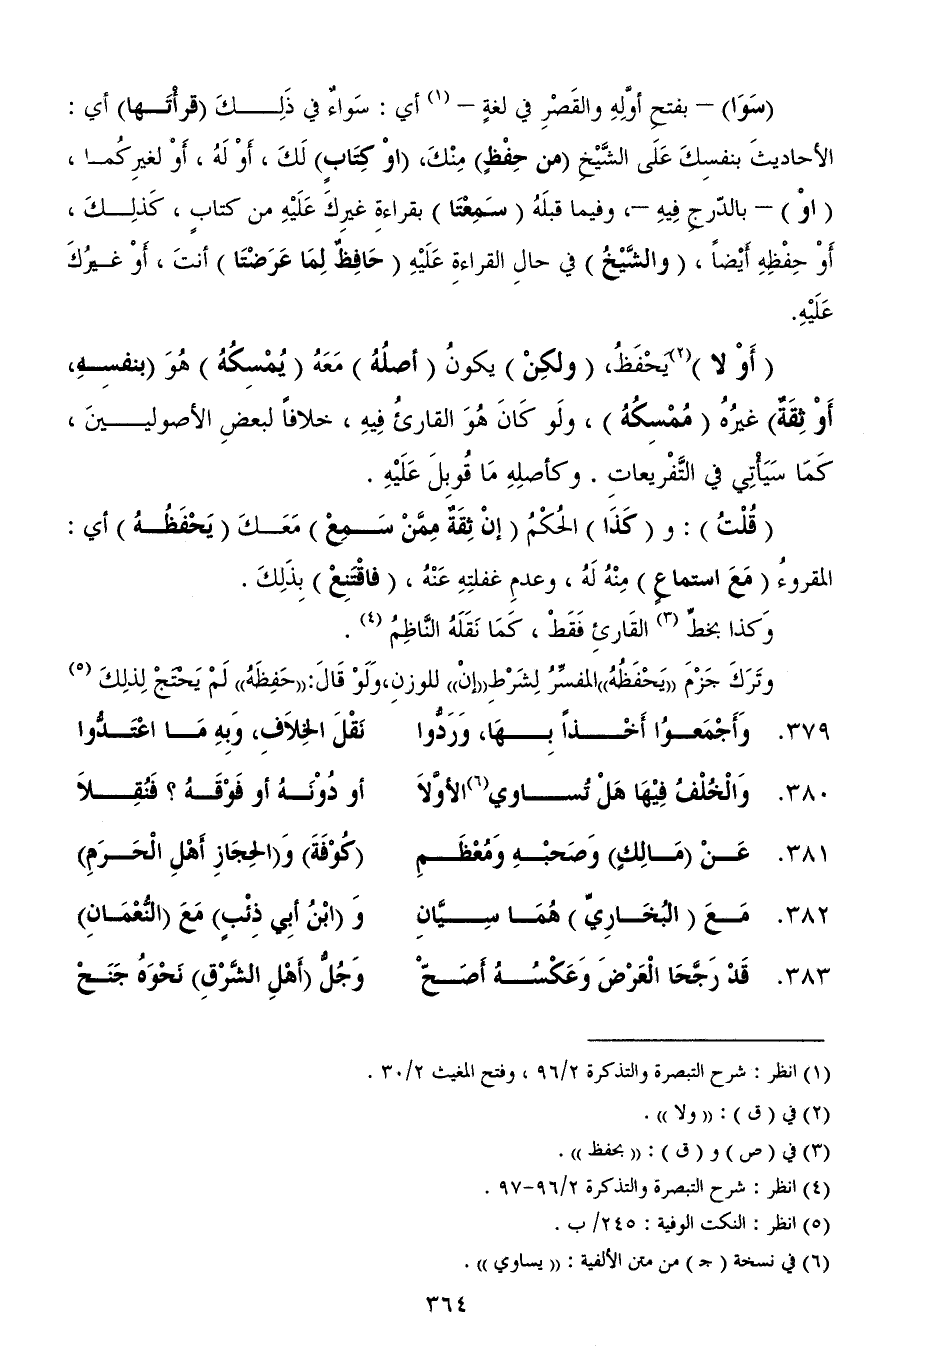 (سَوَا) – بفتحِ أوَّلِهِ والقَصْرِ في لغةٍ – (١) أي : سَواءٌ في ذَلِـــكَ (قرأْتَــها) أي :
الأحاديثَ بنفسِكَ عَلَى الشَّيْخِ (من حِفْظٍ) مِنْكَ، (اوْ كِتَابٍ) لَكَ ، أَوْ لَهُ ، أَوْ لغيرِكُمــا ،
( اوْ ) – بالدّرجِ فِيهِ –، وفيما قبلَهُ ( سَمِعْتَا ) بقراءةِ غيرِكَ عَلَيْهِ من كتابٍ ، كَذلِــكَ ،
أَوْ حِفْظِهِ أَيْضاً ، ( والشَّيْخُ ) في حالِ القراءةِ عَلَيْهِ ( حَافِظٌ لِمَا عَرَضْتَا ) أنتَ ، أَوْ غــيرُكَ
عَلَيْهِ.
( أَوْ لا )(٢)يَحْفَظُ، ( ولكِنْ ) يكونُ ( أصلُهُ ) مَعَهُ ( يُمْسِكُهُ ) هُوَ (بنفسِــهِ،
أوْ ثِقَةٌ) غيرُهُ ( مُمْسِكُهُ ) ، ولَو كَانَ هُوَ القارئُ فِيهِ ، خلافاً لبعضِ الأصولِيــــينَ ،
كَمَا سَيَأْتِي في التَّفْريعات . وكأصلِهِ مَا قُوبلَ عَلَيْهِ .
( قُلْتُ ) : و ( كَذَا ) الحُكْمُ ( إنْ ثِقَةٌ مِمَّنْ سَــمِعْ ) مَعَــكَ ( يَحْفَظُــهُ ) أي :
المقروءُ ( مَعَ استماعٍ ) مِنْهُ لَهُ ، وعدمِ غفلتِهِ عَنْهُ ، ( فاقْتَنِعْ ) بِذَلِكَ .
وَكذا بخطِّ (٣) القارئِ فَقَطْ ، كَمَا نَقَلَهُ النَّاظِمُ (٤) .
وتَرَكَ جَزْمَ «يَحْفَظُهُ»المفسِّرُ لِشَرْطِ«إنْ» للوزنِ،ولَوْ قَالَ:«حَفِظَهُ» لَمْ يَحْتَجْ لِذلِكَ (٥)
٣٧٩. وَأَجْمَعــوُا أَخْــــذاً بِــهَا، وَرَدُّوا نَقْلَ الخِلاَفِ، وَبِهِ مَــا اعْتَــدُّوا
٣٨٠. وَالْخُلْفُ فِيْهَا هَلْ تُســـاوي(٦)الأوَّلاَ أو دُوْنَــهُ أو فَوْقَــهُ ؟ فَنُقِــلاَ
٣٨١. عَــنْ (مَــالِكٍ) وَصَحْبِــهِ وَمُعْظَــمِ (كُوْفَةَ) وَ(الحِجَازِ أَهْلِ الْحَــرَمِ)
٣٨٢. مَــعَ ( البُخَــاريِّ ) هُمَــا سِــيَّانِ وَ (ابْنُ أبي ذِئْبٍ) مَعَ (النُّعْمَــانِ)
٣٨٣. قَدْ رَجَّحَا الْعَرْضَ وَعَكْسُــهُ أَصَــحّْ وَجُلُّ (أَهْلِ الشَّرْقِ) نَحْوَهُ جَنَــحْ
(١) انظر : شرح التبصرة والتذكرة ٩٦/٢ ، وفتح المغيث ٣٠/٢ .
(٢) في ( ق ) : « ولا » .
(٣) في ( ص ) و ( ق ) : « بحفظ » .
(٤) انظر : شرح التبصرة والتذكرة ٩٦/٢-٩٧ .
(٥) انظر : النكت الوفية : ٢٤٥/ ب .
(٦) في نسخة ( جـ ) من متن الألفية : « يساوي » .
٣٦٤